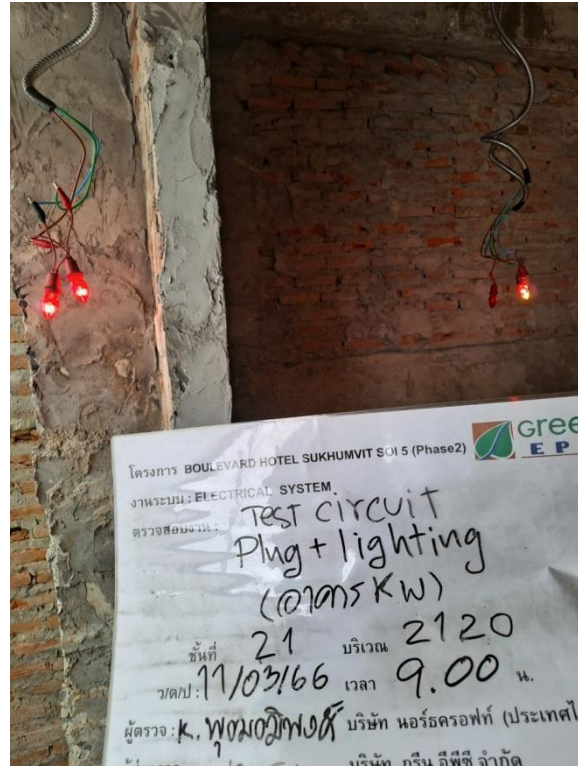 Gree
E P
โครงการ BOULEVARD HOTEL SUKHUMVIT SOI 5 (Phase2)
งานระบบ : ELECTRICAL SYSTEM
ตรวจสอบงาน : Test circuit
Plug + lighting
(อาคาร KW)
ชั้นที่ 21 บริเวณ 2120
ว/ด/ป : 11/03/66 เวลา 9.00 น.
ผู้ตรวจ : K. บริษัท นอร์ธครอฟท์ (ประเทศไ
บริษัท กรีน อีพีซี จำกัด